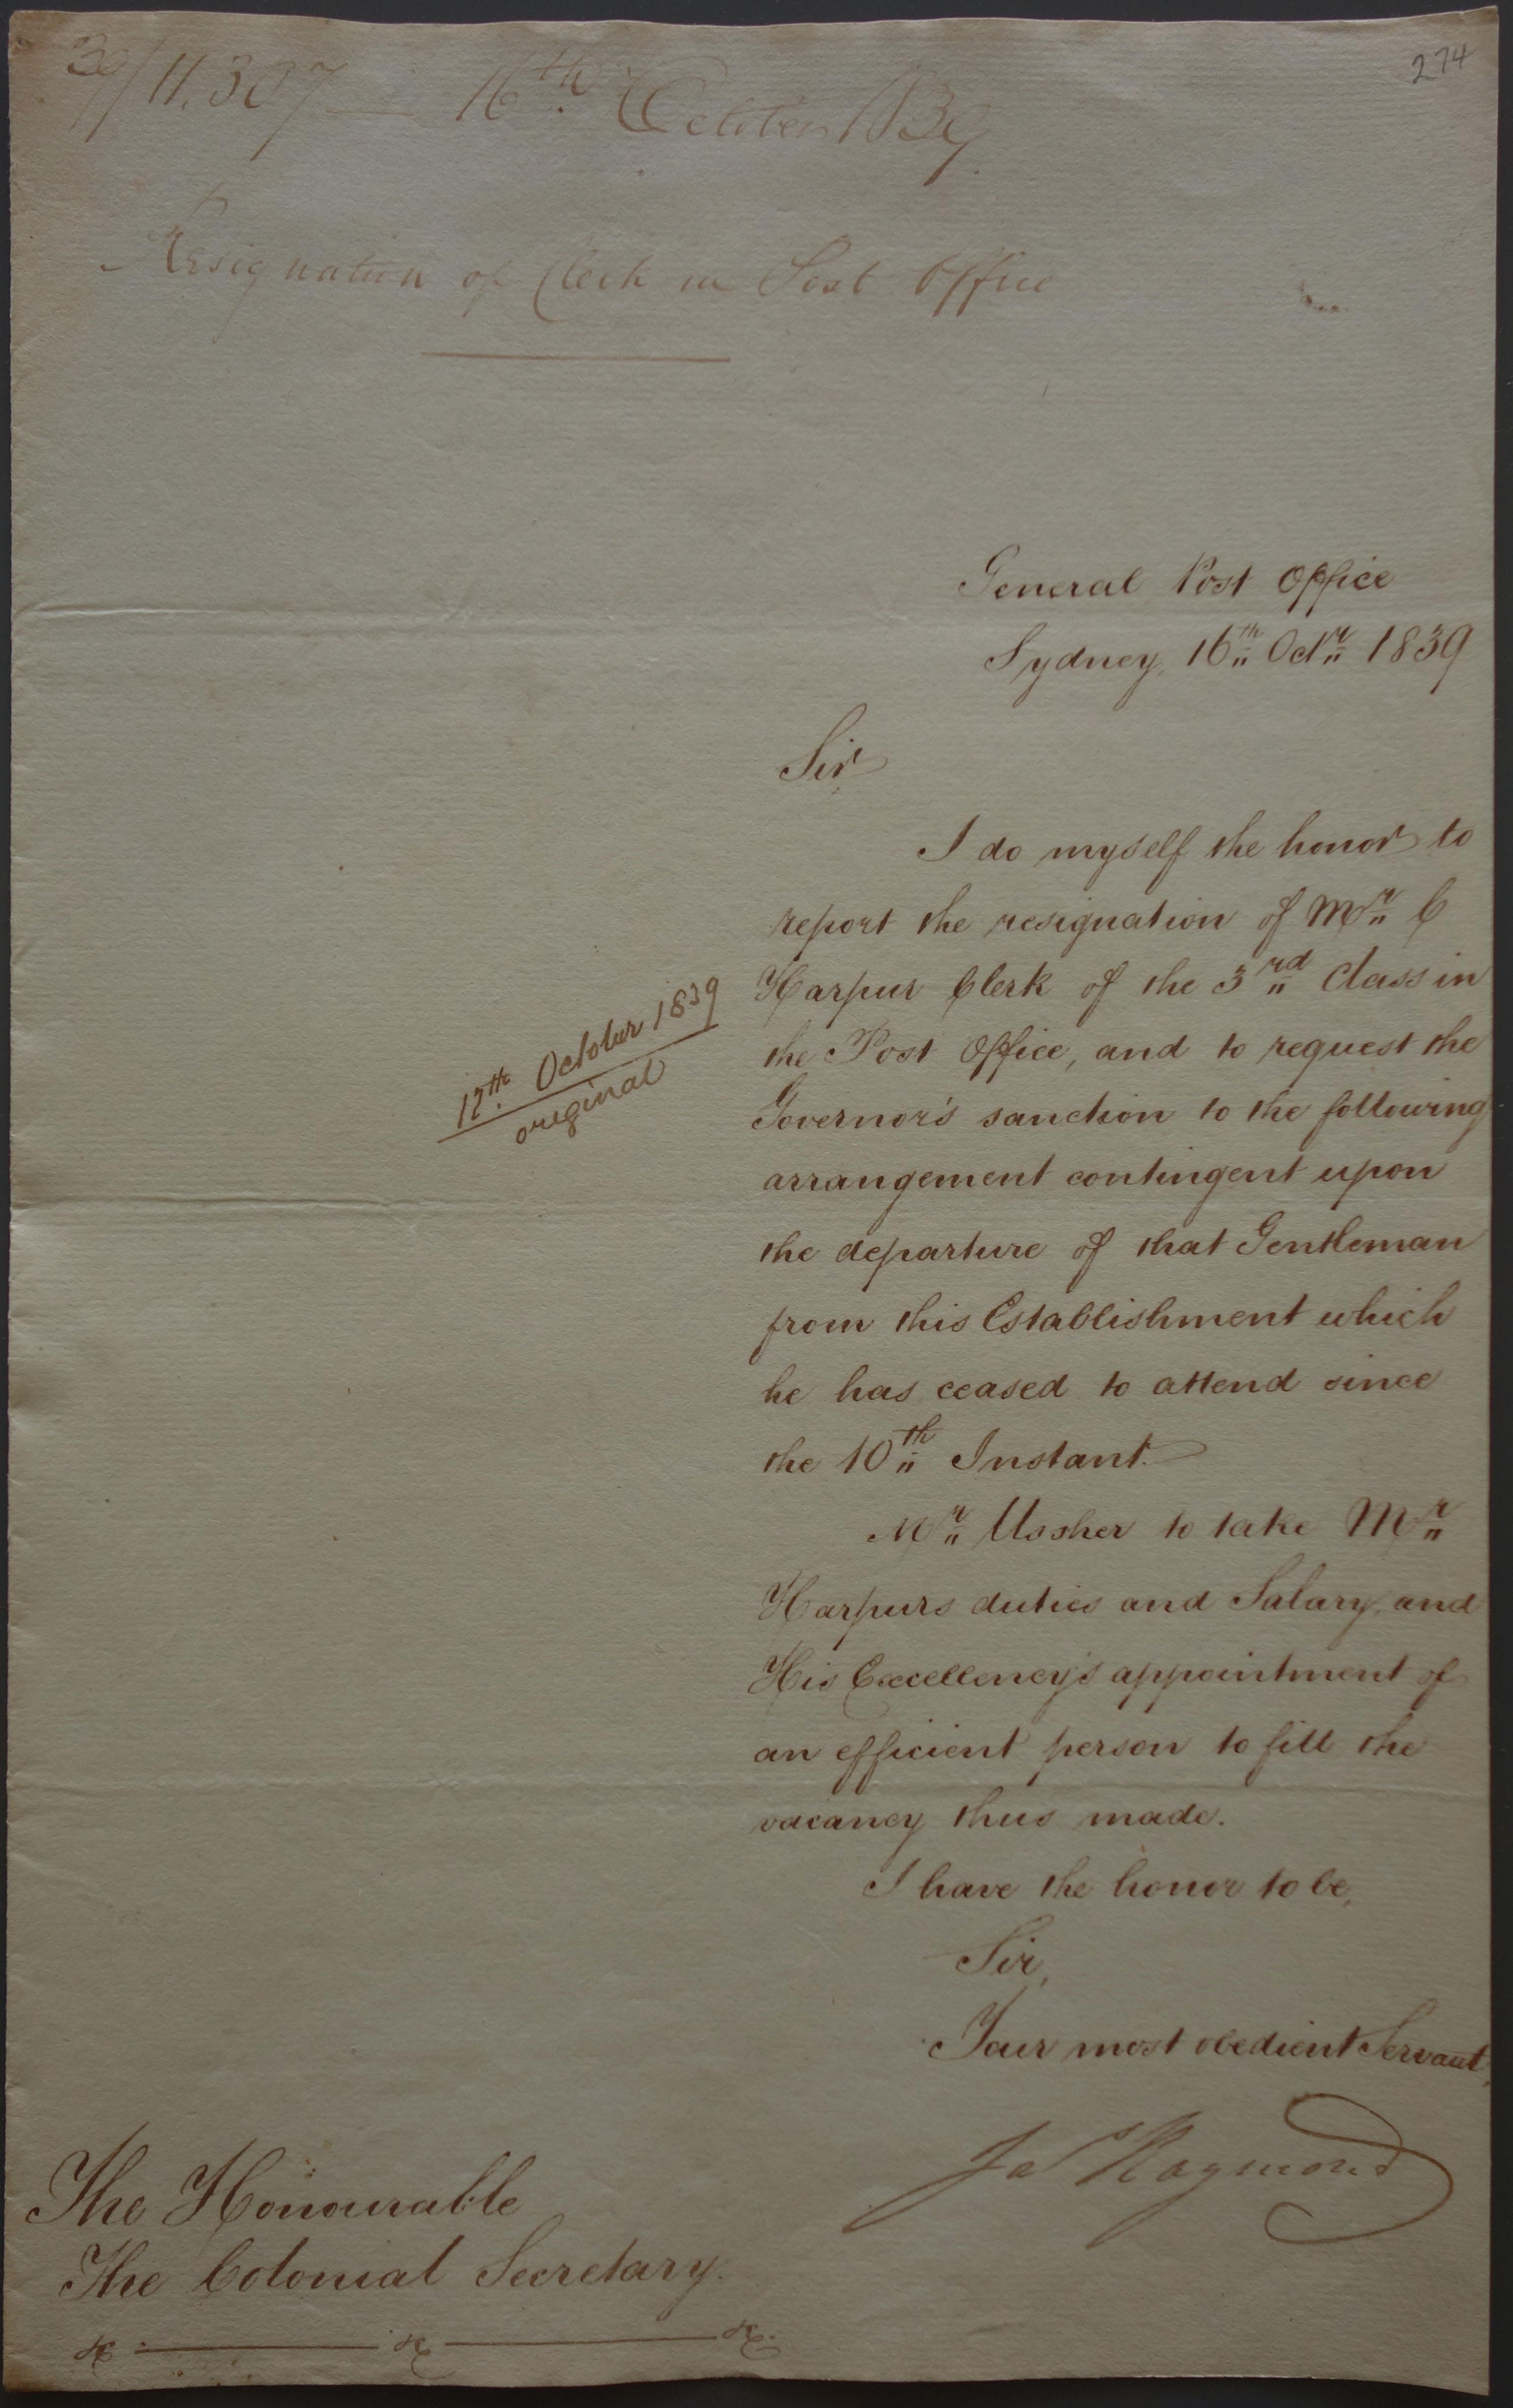 274
39/11.307 — 16th. October 1839
Resignation of Clerk in Post Office
General Post Office
Sydney, 16th Octr 1839
Sir,
I do myself the honor to
report the resignation of Mr C
Harpur Clerk of the 3rd Class in
the Post Office, and to request the
Governor's sanction to the following
arrangement contingent upon
the departure of that Gentleman
from this Establishment which
he has ceased to attend since
the 10th Instant.
Mr Ussher to take Mr
Harpurs duties and Salary, and
His Excellency's appointment of
an efficient person to fill the
vacancy thus made.
I have the honor to be,
Sir,
Your most obedient Servant,
Jas Raymond
12th. October 1839
original
The Honourable
The Colonial Secretary.
&c. — &c — &c.